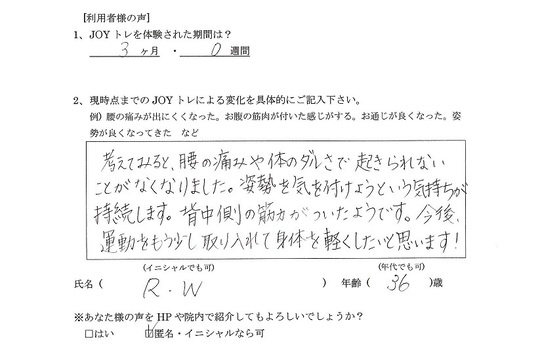 [利用者様の声]
1、JOYトレを体験された期間は？
3 ヶ月 ・ 0 週間
2、現時点までのJOYトレによる変化を具体的にご記入下さい。
例）腰の痛みが出にくくなった。お腹の筋肉が付いた感じがする。お通じが良くなった。姿
勢が良くなってきた など
考えてみると、腰の痛みや体のダルさで起きられない
ことがなくなりました。姿勢を気を付けようという気持ちが
持続します。背中側の筋力がついたようです。今後、
運動をもう少し取り入れて身体を軽くしたいと思います！
(イニシャルでも可) (年代でも可)
氏名（ R.W ） 年齢（ 36 ）歳
※あなた様の声をHPや院内で紹介してもよろしいでしょうか？
□はい ☑匿名・イニシャルなら可